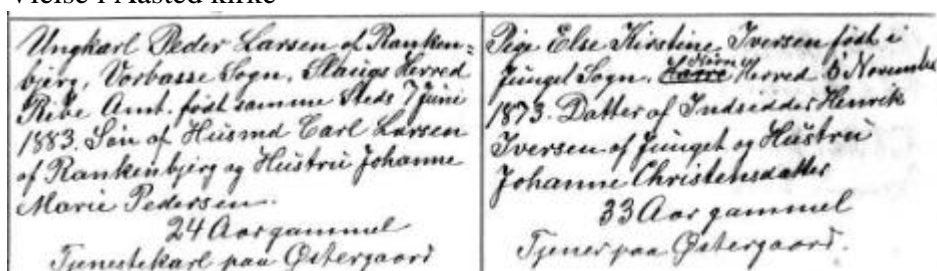 Vielse i Aasted kirke
Ungkarl Peder Larsen af Ranken-
bjerg, Vorbasse Sogn, Slaugs Herred
Ribe Amt. født samme Steds 7 Juni
1883. Søn af Husmd Carl Larsen
af Rankenbjerg og Hustru Johanne
Marie Pedersen.
24 Aar gammel
Tjenestekarl paa Østergaard
Pige Else Kirstine Iversen født i
Junget Sogn, Nørre Herred 5 November
1873. Datter af Indsidder Henrik
Iversen af Junget og Hustru
Johanne Christensdatter
33 Aar gammel
Tjener paa Østergaard.